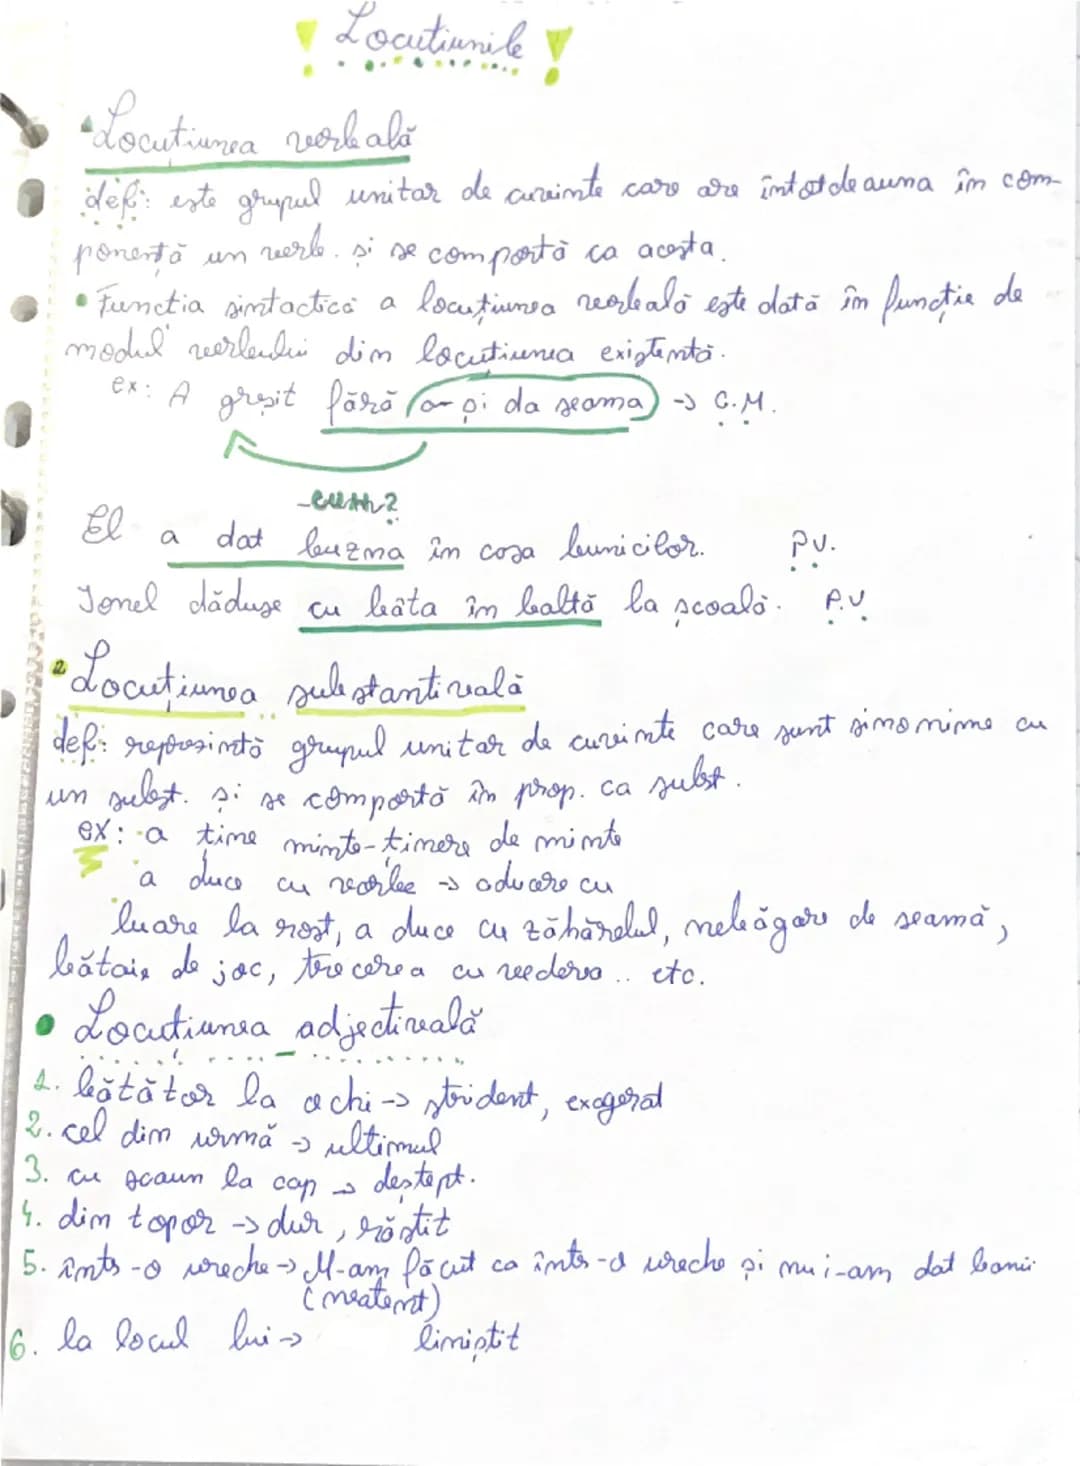 ! Locutiunile !
Locuțiunea verbală
def: este grupul unitar de cuvinte care are întotdeauna în com-
ponență un verb. și se comportă ca acesta.
• Functia sintactică a locuțiunea verbală este dată în funcție de
modul verbului din locutiunea existentă.
ex: A greșit fără a-și da seama → C.M.
cum?
El a dat buzna în casa bunicilor. P.V.
Ionel dăduse cu bâta în baltă la școală. P.V.
2 Locuțiunea substantivală
def: reprezintă grupul unitar de cuvinte care sunt sinonime cu
un subst. și se comportă în prop. ca subst.
ex: a tine minte - tinere de minte
a duce cu vorbe → aducere cu
luare la rost, a duce cu zăhărelul, nebăgare de seamă,
bătaie de joc, trecerea cu vederea .. etc.
• Locuțiunea adjectivală
1. bătător la ochi → strident, exagerat
2. cel din urmă → ultimul
3. cu scaun la cap → deștept.
4. din topor → dur, răstit
5. într-o ureche → M-am făcut ca într-o ureche și nu i-am dat banii
(neatent)
6. la locul lui → liniștit